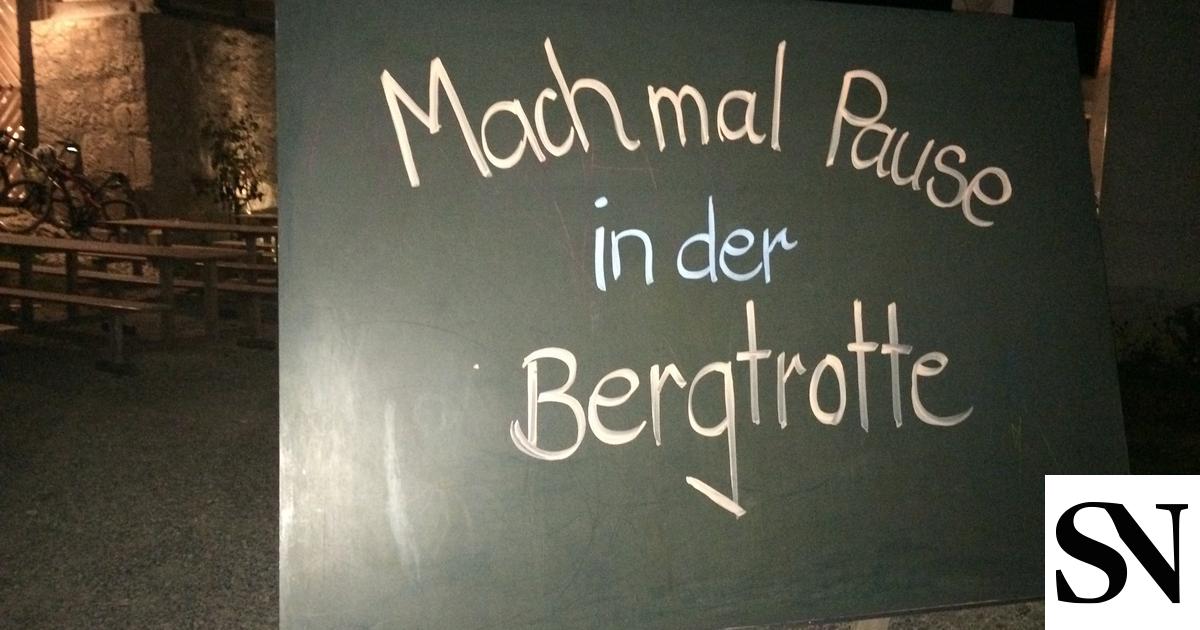 Mach mal Pause
in der
Bergtrotte
SN